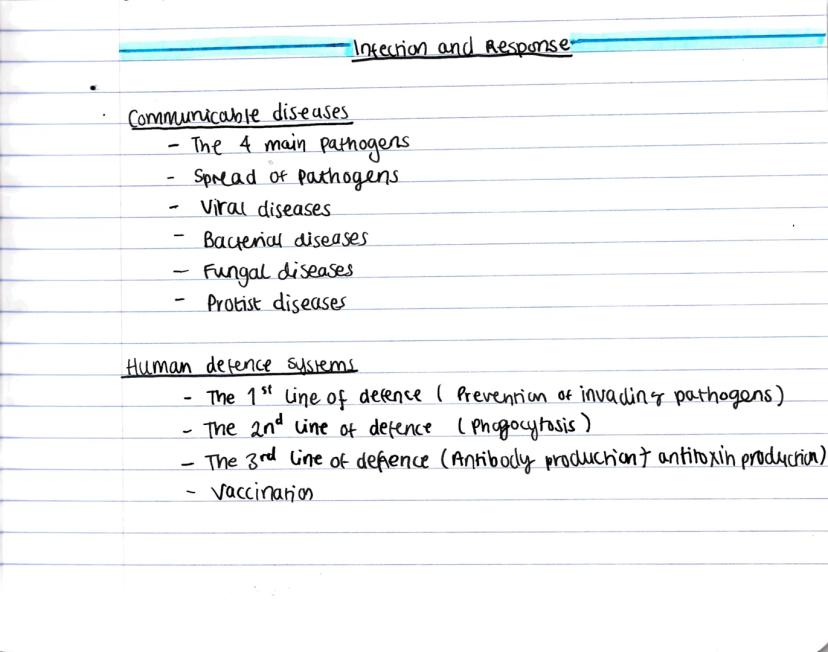 Infection and Response
Communicable diseases
- The 4 main pathogens
- Spread of pathogens
- Viral diseases
- Bacterial diseases
- Fungal diseases
- Protist diseases
Human defence systems
- The 1st line of defence ( Prevention of invading pathogens)
- The 2nd line of defence (Phagocytosis)
- The 3rd line of defence (Antibody production + antitoxin production)
- Vaccination